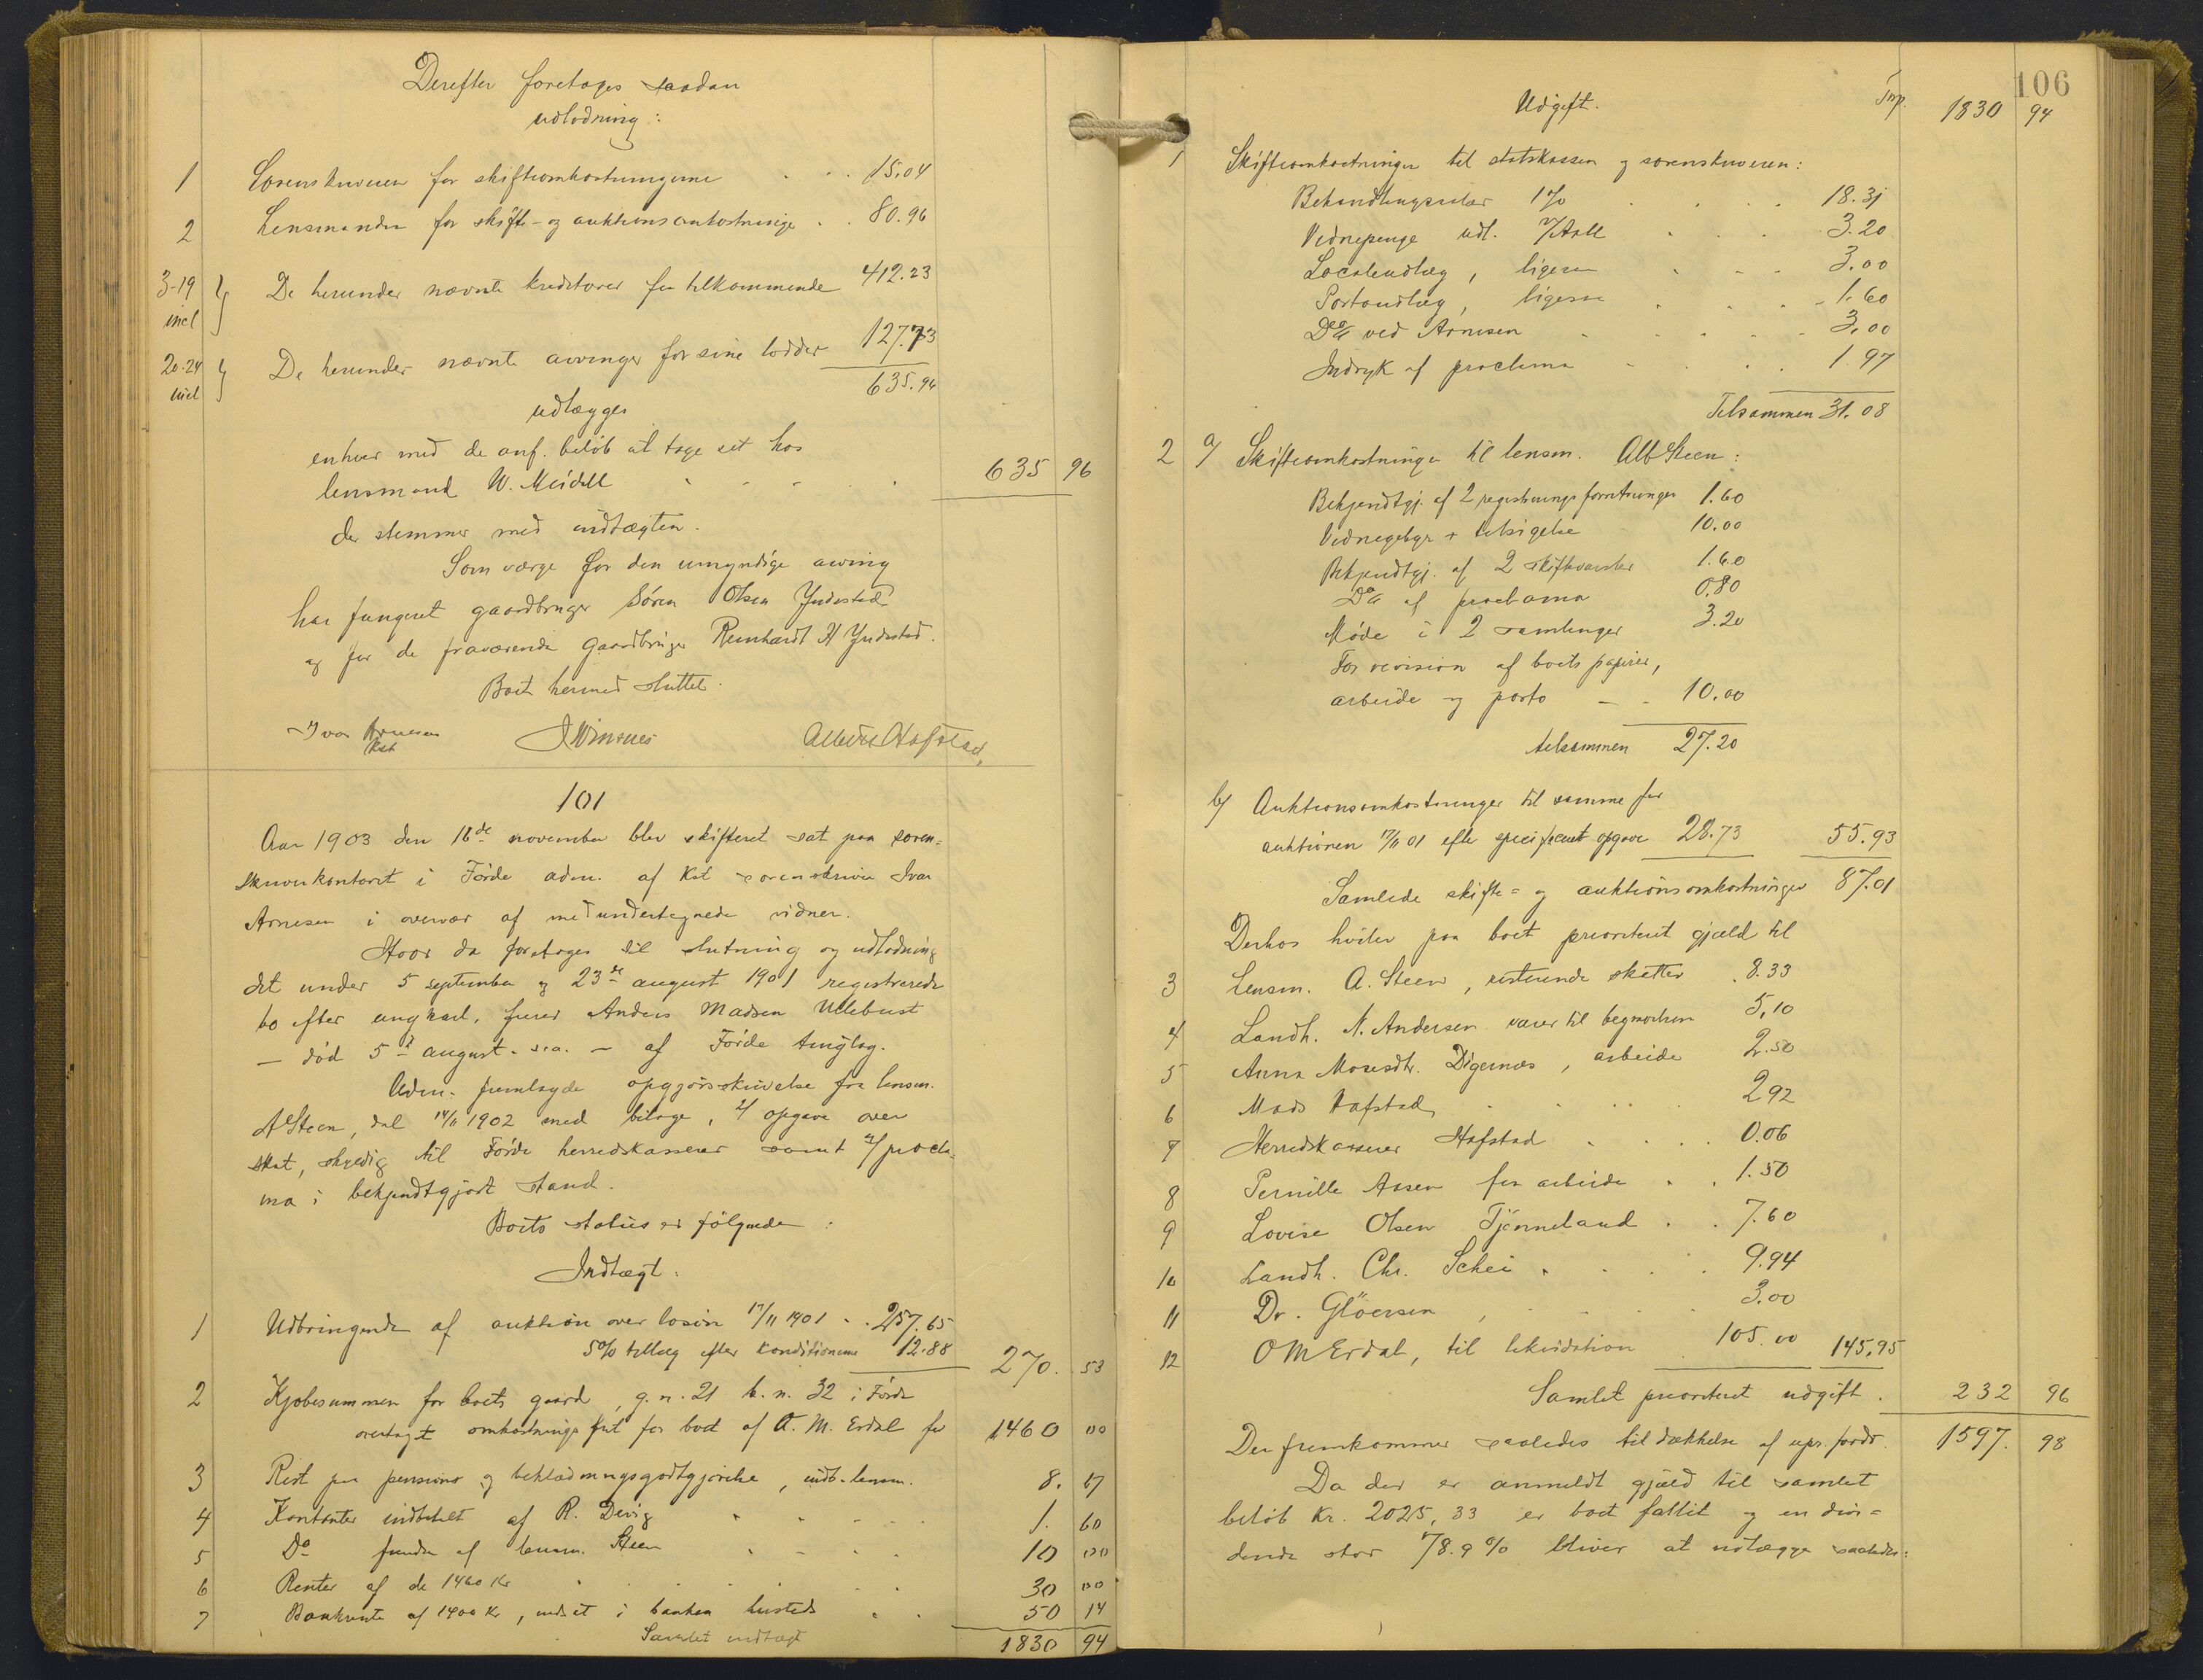 Derefter foretages saadan
udlodning:
1 Sorenskriveren for skifteomkostningerne . . . 15.04
2 Lensmanden for skifte- og auktionsomkostninger . . 80.96
3-19 incl } De herunder nævnte kreditorer for tilkommende 412.23
20-24 incl } De herunder nævnte arvinger for sine lodder 127.73
635.96
udlægges
enhver med de anf. beløb at tage ut hos
lensmand W. Meidell . . . . 635 96
der stemmer med indtægten.
Som værge for den umyndige arving
har fungeret gaardbruger Søren Olsen Yndestad
og for de fraværende gaardbruger Reinhardt H Yndestad.
Boet hermed sluttet.
Ivar Arnesen
Kst
J Vinsnes
Albert Hafstad,
101
Aar 1903 den 18de november blev skifteret sat paa soren=
skriverkontoret i Førde adm. af Kst sorenskriver Ivar
Arnesen i overvær af medundertegnede vidner.
Hvor da foretoges til slutning og udlodning
det under 5 september og 23de august 1901 registrerede
bo efter ungkarl, furer Anders Madsen Ullebust
— død 5te august s. a. — af Førde tinglag.
Adm. fremlagde opgjørsskrivelse fra lensm.
A Steen, dat 14/11 1902 med bilage, 4/ opgave over
skat, skyldig til Førde herredskasserer samt 4/ procla-
ma i bekjendtgjort stand.
Boets status er følgende:
Indtægt.
1 Udbringende af auktion over løsøre 17/11 1901 . . 257.65
5% tillæg efter konditionerne 12.88 270. 53
2 Kjøbesummen for boets gaard, g.n. 21 b.n. 32 i Førde
overtagt omkostningsfrit for boet af O. M. Erdal for 1460 00
3 Rest paa pensions og beklædningsgodtgjørelse, indb. lensm. 8. 67
4 Kontanter indbetalt af R. Devig . . . . 1. 60
5 Do funden af lensm. Steen . . . . 10 00
6 Renter af de 1460 Kr . . . . 30 00
7 Bankrente af 1400 Kr, indsat i banken hersteds . . 50 14
Samlet indtægt 1830 94
106
Udgift. Trsp. 1830 94
1 Skifteomkostninger til statskassen og sorenskriveren:
Behandlingssalær 1% . . . . 18.31
Vidnepenge udl. v/ Aall . . . 3.20
Localeudlæg, ligesaa . . . 3.00
Portoudlæg, ligesaa . . . . 1.60
Do ved Arnesen . . . . 3,00
Indryk af proclama . . . . 1.97
Tilsammen 31.08
2 a/ Skifteomkostninger til lensm. Alb Steen:
Bekjendtgj. af 2 registreringsforretninger 1.60
Vidnegebyr + tilsigelse 10.00
Bekjendtgj. af 2 skiftevarsler 1.60
Do af proclama 0.80
Møde i 2 samlinger 3.20
For revision af boets papirer,
arbeide og porto — - 10.00
tilsammen 27.20
b/ Auktionsomkostninger til samme for
auktionen 17/11 01 efter specificeret opgave 28.73 55.93
Samlede skifte= og auktionsomkostninger 87.01
Derhos hviler paa boet prioriteret gjæld til
3 Lensm. A. Steen, resterende skatter . 8.33
4 Landh. N. Andersen varer til begravelsen 5,10
5 Anna Mosesdtr. Digernæs, arbeide 2.50
6 Mads Hafstad . . . . 2.92
7 Herredskasserer Hafstad . . . . 0.06
8 Pernille Aasen for arbeide . . 1.50
9 Lovise Olsen Tjønneland . . 7.60
10 Landh. Chr. Schei . . . . 9.94
11 Dr. Gløersen , . . . . 3.00
12 O M Erdal, til likvidation 105.00 145,95
Samlet prioriteret udgift . 232 96
Der fremkommer saaledes til dækkelse af upr. fordr. 1597. 98
Da der er anmeldt gjæld til samlet
beløb Kr. 2025,33 er boet fallit og en divi=
dende stor 78.9 % bliver at udlægge saaledes: